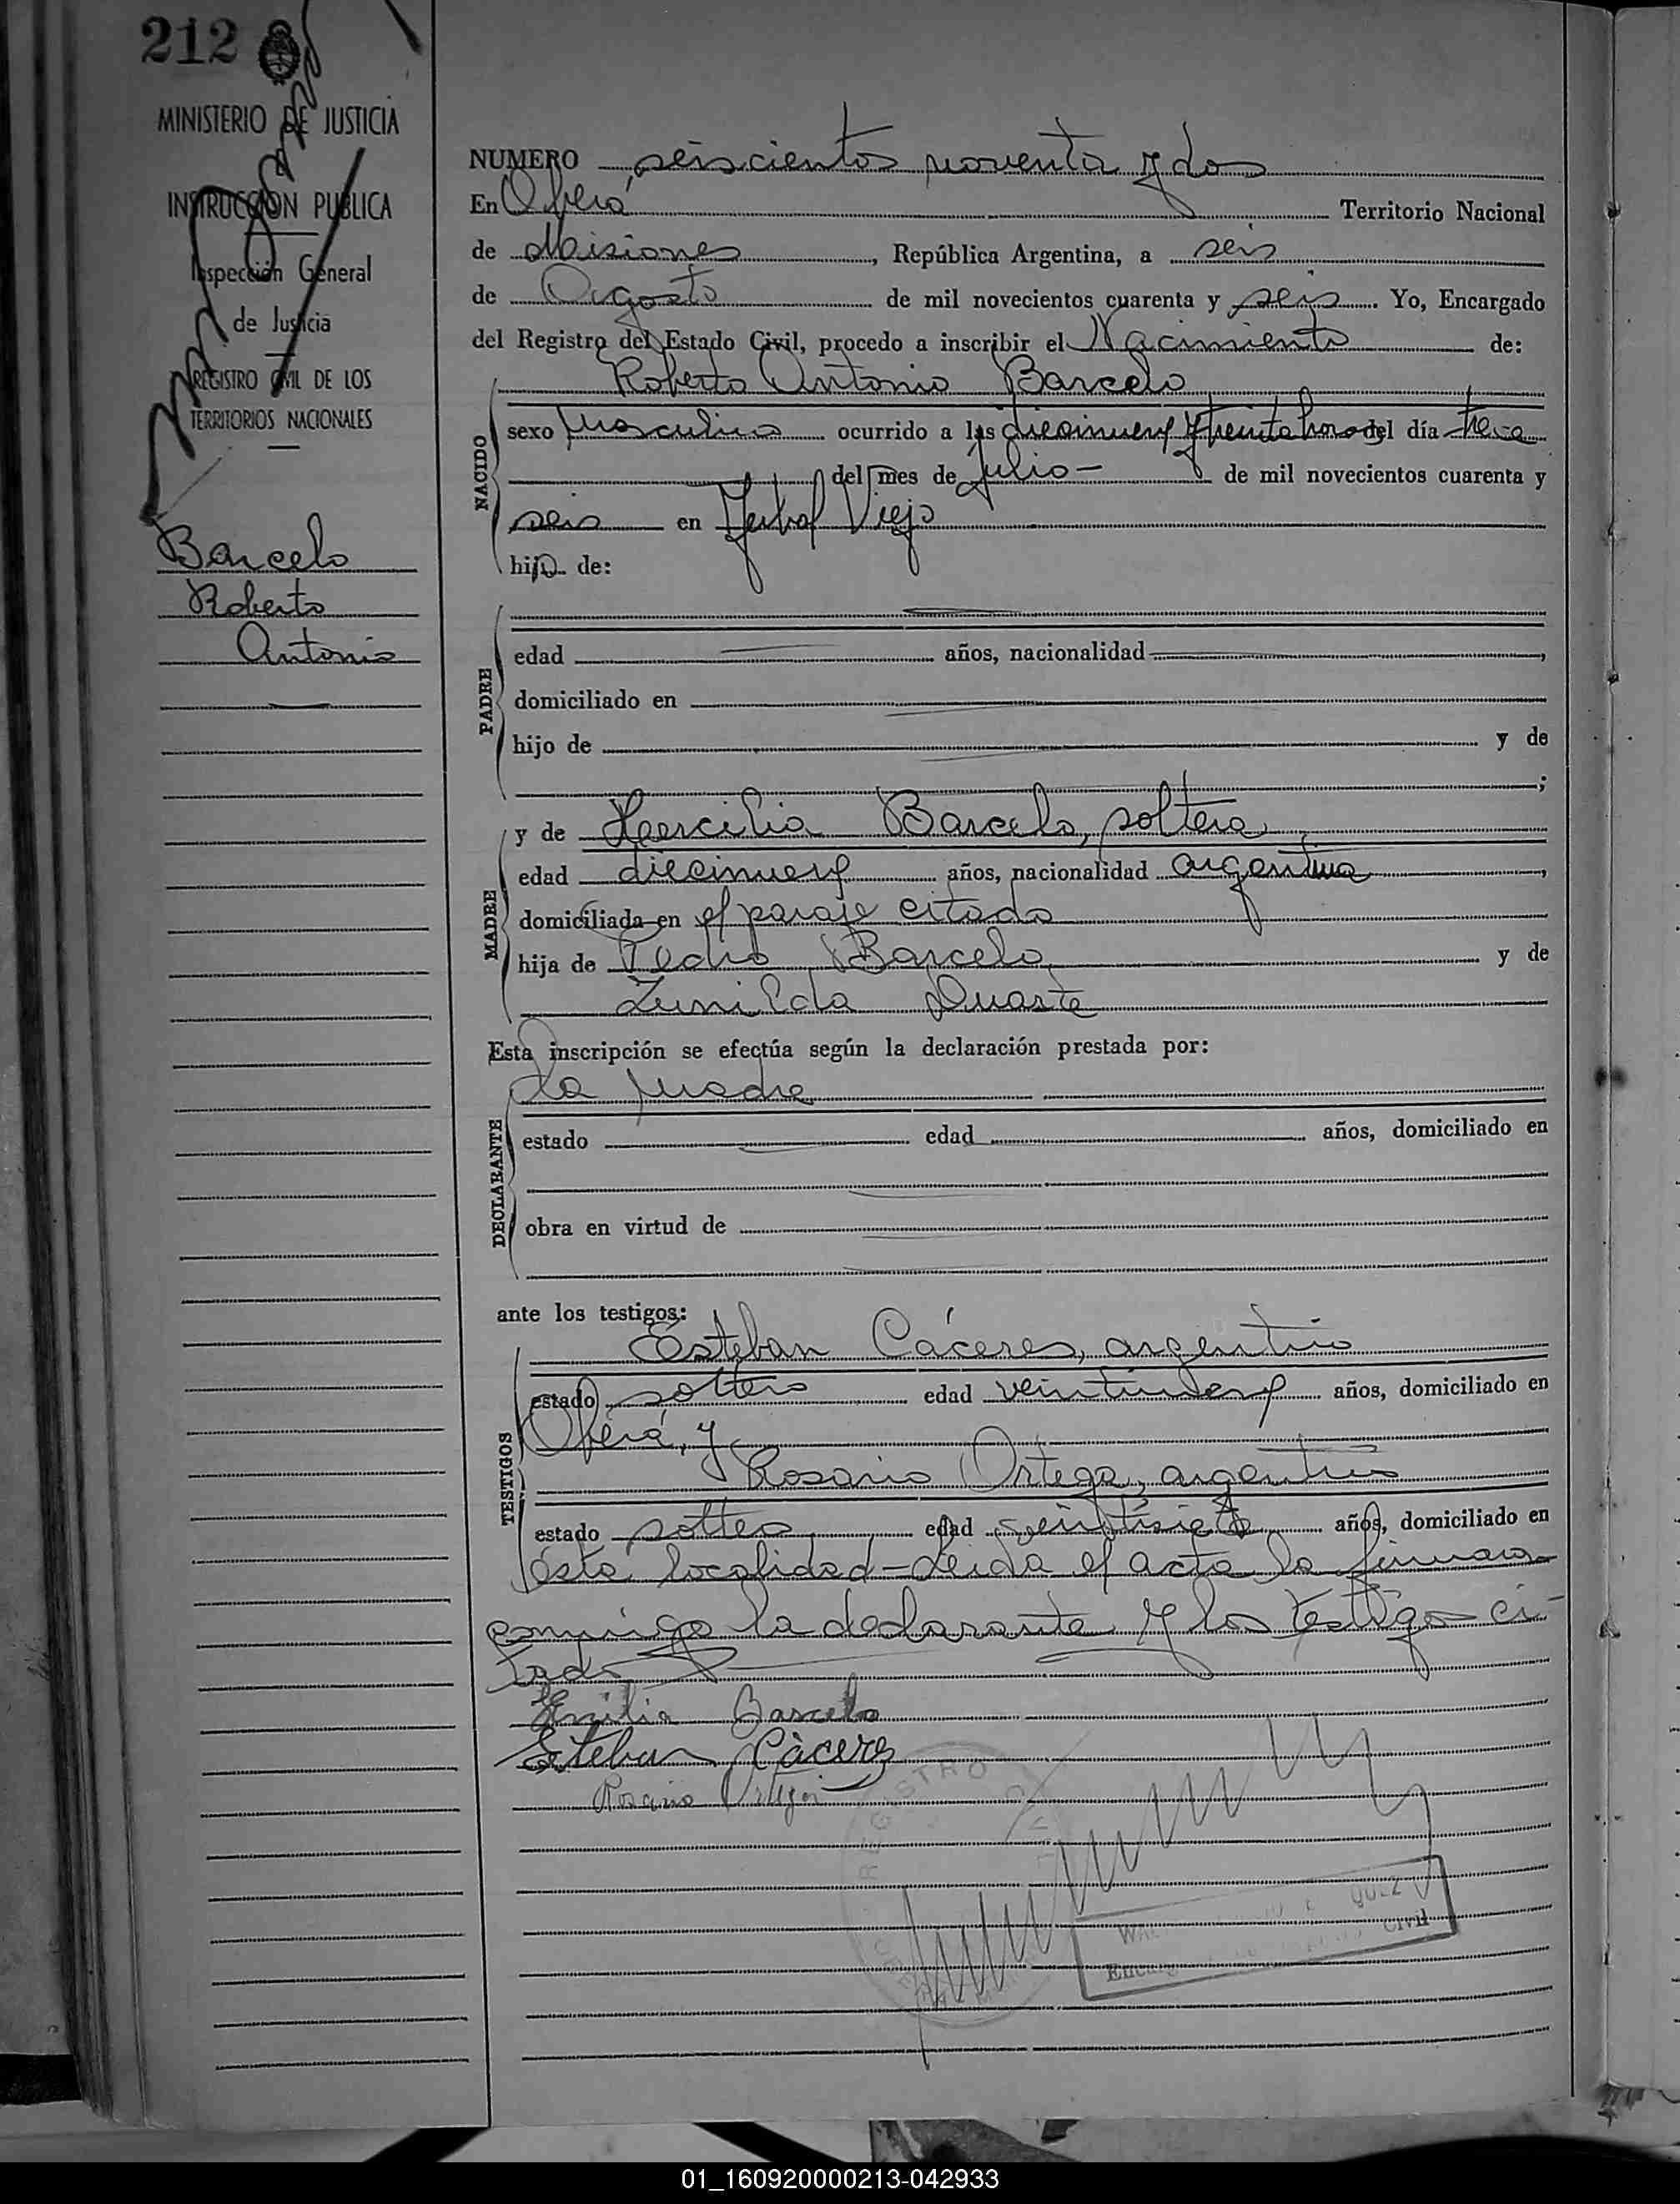 212
MINISTERIO DE JUSTICIA
INSTRUCCION PUBLICA
Inspección General
de Justicia
REGISTRO CIVIL DE LOS
TERRITORIOS NACIONALES
Barcelo
Roberto
Antonio
NUMERO seiscientos noventa y dos
En Oberá Territorio Nacional
de Misiones, República Argentina, a seis
de Agosto de mil novecientos cuarenta y seis. Yo, Encargado
del Registro del Estado Civil, procedo a inscribir el Nacimiento de:
Roberto Antonio Barcelo
NACIDO
sexo masculino ocurrido a las diecinueve y treinta horas del día trece
del mes de julio de mil novecientos cuarenta y
seis en Yerbal Viejo
hijo de:
PADRE
edad años, nacionalidad ,
domiciliado en
hijo de y de
;
MADRE
y de Hercilia Barcelo, soltera,
edad diecinueve años, nacionalidad argentina,
domiciliada en el paraje citado
hija de Pedro Barcelo y de
Zunilda Duarte
Esta inscripción se efectúa según la declaración prestada por:
la madre
DECLARANTE
estado edad años, domiciliado en
obra en virtud de
ante los testigos:
Esteban Cáceres, argentino
TESTIGOS
estado soltero edad veintinueve años, domiciliado en
Oberá, y
Rosario Ortega, argentino
estado soltero edad veintisiete años, domiciliado en
ésta localidad - Leida el acta la firman
conmigo la declarante y los testigos ci-
tados
Barcelo
Esteban Càceres
Rosario Ortega
REGISTRO CIVIL
CIVIL
01_160920000213-042933